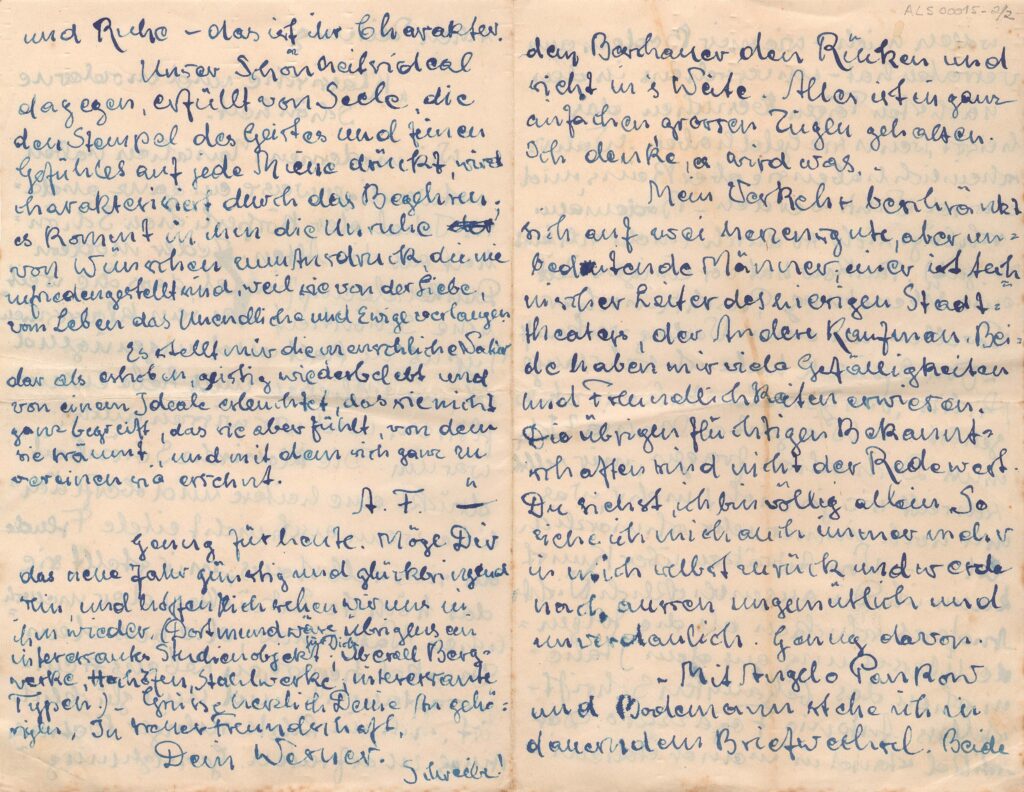 ALS 00015-2/2
und Ruhe – das ist ihr Charakter.
Unser Schönheitsideal
dagegen, erfüllt von Seele, die
den Stempel des Geistes und feinen
Gefühles auf jede Miene drückt, wird
charakterisiert durch das Begehren;
es kommt in ihm die Unruhe
von Wünschen zum Ausdruck, die nie
zufriedengestellt sind, weil sie von der Liebe,
vom Leben das Unendliche und Ewige verlangen
Es stellt mir die menschliche Natur
dar als erhoben, geistig wiederbelebt und
von einem Ideale erleuchtet, das sie nicht
ganz begreift, das sie aber fühlt, von dem
sie träumt, und mit dem sich ganz zu
vereinen sie ersehnt.
A. F.
Genug für heute. Möge Dir
das neue Jahr günstig und glückbringend
sein und hoffentlich sehen wir uns in
ihm wieder. (Dortmund wäre übrigens ein
interessantes Studienobjekt für Dich, überall Berg-
werke, Hochöfen, Stahlwerke, interessante
Typen.) – Grüsse herzlich Deine Angehö-
rigen. In treuer Freundschaft.
Dein Werner.
Schreibe!
dem Beschauer den Rücken und
sieht in's Weite. Alles ist in ganz
einfachen grossen Zügen gehalten.
Ich denke, es wird was. –
Mein Verkehr beschränkt
sich auf zwei herzensgute, aber un=
bedeutende Männer; einer ist tech=
nischer Leiter des hiesigen Stadt=
theaters, der Andere Kaufman. Bei=
de haben mir viele Gefälligkeiten
und Freundlichkeiten erwiesen.
Die übrigen flüchtigen Bekannt=
schaften sind nicht der Rede wert.
Du siehst, ich bin völlig allein. So
ziehe ich mich auch immer mehr
in mich selbst zurück und werde
nach aussen ungemütlich und
unverdaulich. Genug davon.
– Mit Angelo Pankow
und Bodemann stehe ich in
dauerndem Briefwechsel. Beide